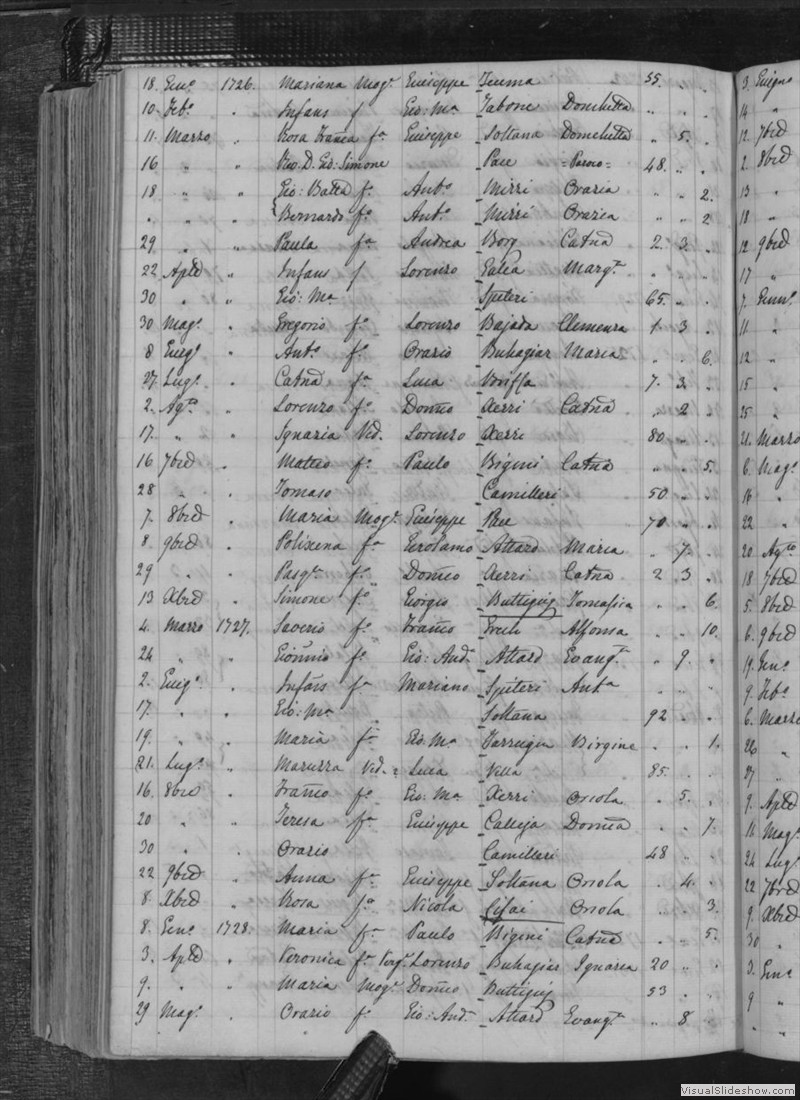 18. Genº 1726. Mariana Mogᵉ Giuseppe 55. " "
10. Febº " Infans f Gio: Mª Tabone Domchᵗᵗᵃ " " "
11. Marzo " Rosa Franca fª Giuseppe Soltana Domchᵗᵗᵃ " 5. "
16 " " Rev. D. Gio: Simone Pace =Paroco= 48. " "
18 " " Gio: Batta fº Antº Mizzi Grazia " " 2.
" " " Bernardo fº Antº Mizzi Grazia " " 2
29 " " Paula fª Andrea Borg Catnª 2. 3. "
22 Aplᵉ " Infans f Lorenzo Galea Margᵗᵃ " " "
30 " " Gio: Mª Spiteri 65. " "
30 Magº " Gregorio fº Lorenzo Bajada Clemenza 1. 3 "
8 Giugº " Antº fº Orazio Buhagiar Maria " " 6.
27. Lugº " Catnª fª Luca Briffa 7. 3. "
2. Agᵗᵒ " Lorenzo fº Domco Xerri Catnª " 2 "
17. " " Ignazia Ved. Lorenzo Xerri 80 " "
16 7bre " Matteo fº Paulo Bigeni Catnª " " 5.
28 " " Tomaso Camilleri 50 " "
7. 8bre " Maria Mogᵉ Giuseppe Pace 70 " "
8. 9bre " Polixena fª Gerolamo Attard Maria " 7. "
29 " " Pasqˡᵉ fº Domco Xerri Catnª 2 3 "
13 Xbre " Simone fº Giorgio Buttigieg Tomasica " " 6.
4. Marzo 1727. Saverio fº Franco Grech Alfonsa " " 10.
24 " " fº Gio: And. Attard Evangᵗᵃ " 9. "
2. Giugº " Infans fª Mariano Spiteri Antª " " "
17. " " Gio: Mª Soltana 92 " "
19. " " Maria fª Gio: Mª Farrugia Birgine " " 1.
21. Lugº " Maruzza Ved. Luca Vella 85. " "
16. 8bre " Franco fº Gio: Mª Xerri Orsola " 5. "
20 " " Teresa fª Giuseppe Calleja Domca " " 7.
30 " " Orazio Camilleri 48 " "
22 9bre " Anna fª Giuseppe Soltana Orsola " 4. "
8. Xbre " Rosa fª Nicola Orsola " " 3.
8. Genº 1728. Maria fª Paulo Bigeni Catnª " " 5.
3. Aplᵉ " Veronica fª Verg. Lorenzo Buhagiar Ignazia 20 " "
9. " " Maria Mogᵉ Domco Buttigieg 53 " "
29 Magº " Orazio fº Gio: And. Attard Evangᵗᵃ " 8. "
3. Giugno
14 "
12. 7bre
2. 8bre
13 "
18 "
12 9bre
17 "
7. Gennº
11 "
12 "
15 "
25 "
21. Marzo
6. Magº
14 "
22 "
20 Agᵗᵒ
18 7bre
5. 8bre
6. 9bre
19. Genº
9. Febº
6. Marzo
26 "
27 "
9. Aplᵉ
11. Magº
24 Lugº
22 7bre
9. Xbre
30 "
3. Genº
9 "
VisualSlideshow.com